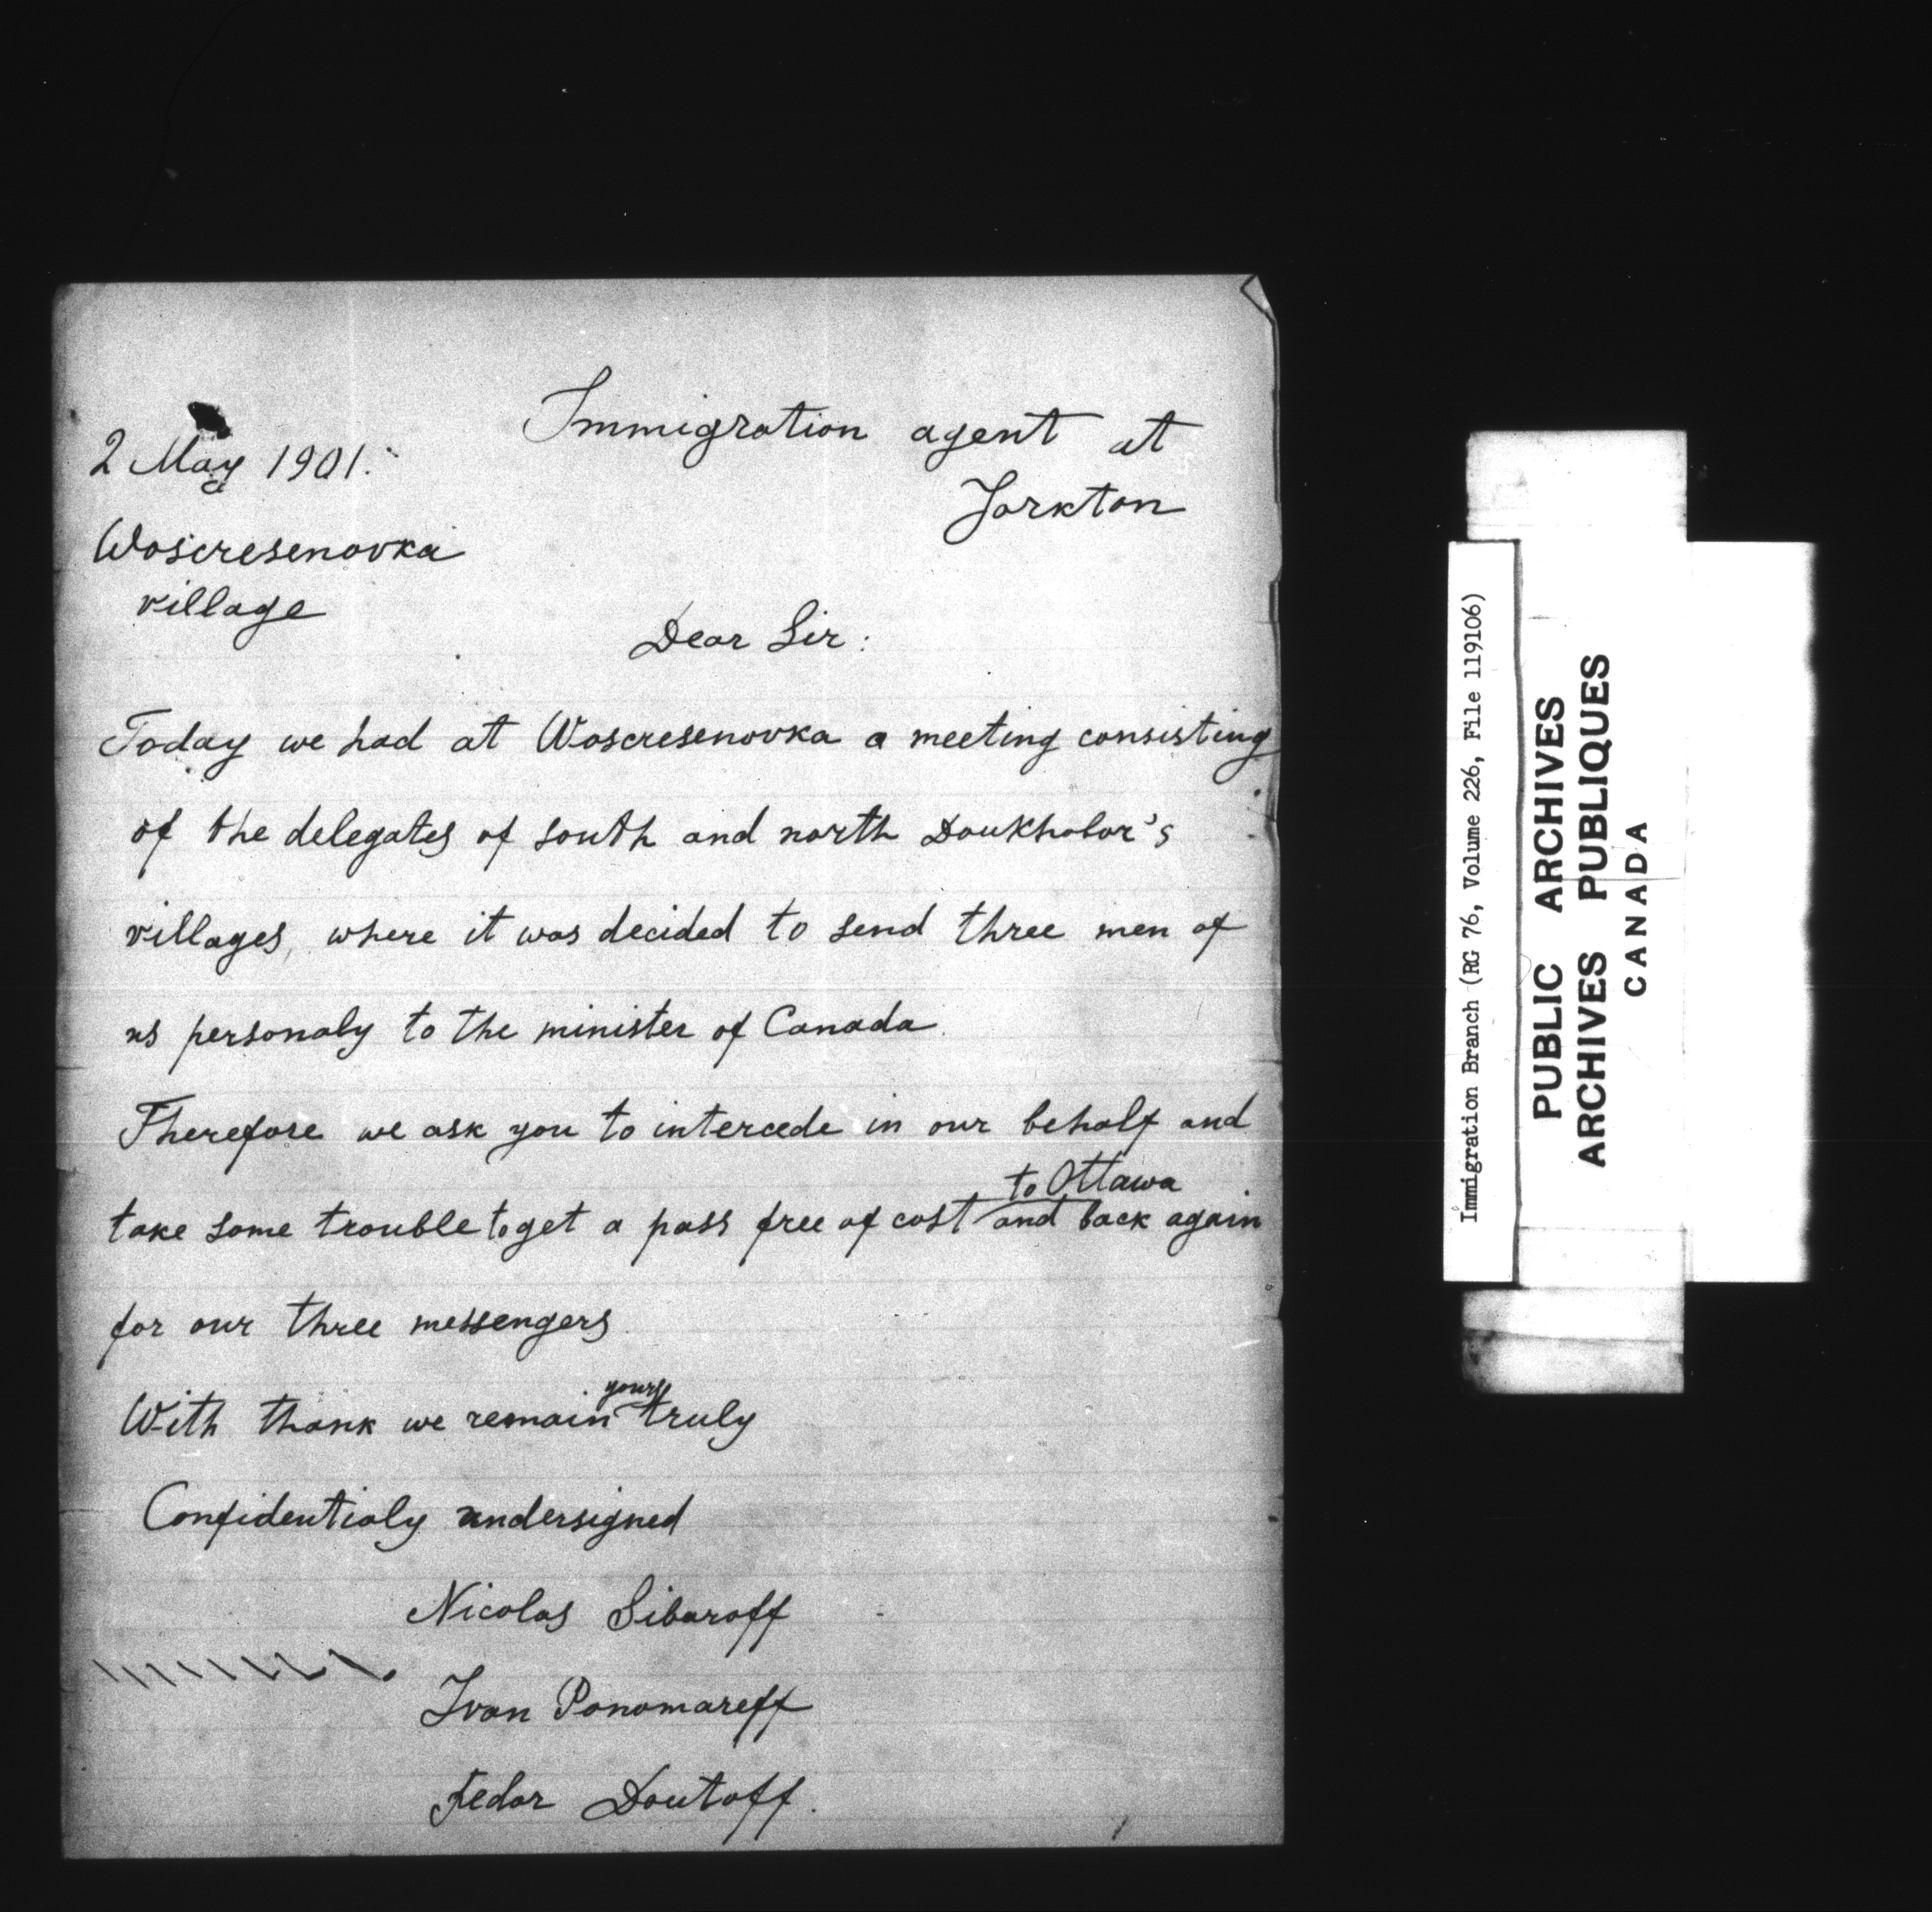 2 May 1901.
Immigration agent at
Yorkton
Woscresenovka
village
Dear Sir:
Today we had at Woscresenovka a meeting consisting
of the delegates of south and north Doukhobor's
villages, where it was decided to send three men of
us personaly to the minister of Canada.
Therefore we ask you to intercede in our behalf and
to Ottawa
take some trouble to get a pass free of cost and back again
for our three messengers
yours
With thank we remain truly
Confidentialy undersigned
Nicolas Sibaroff
Ivan Ponomareff
Fedor Doutoff.
Immigration Branch (RG 76, Volume 226, File 119106)
PUBLIC ARCHIVES
ARCHIVES PUBLIQUES
CANADA